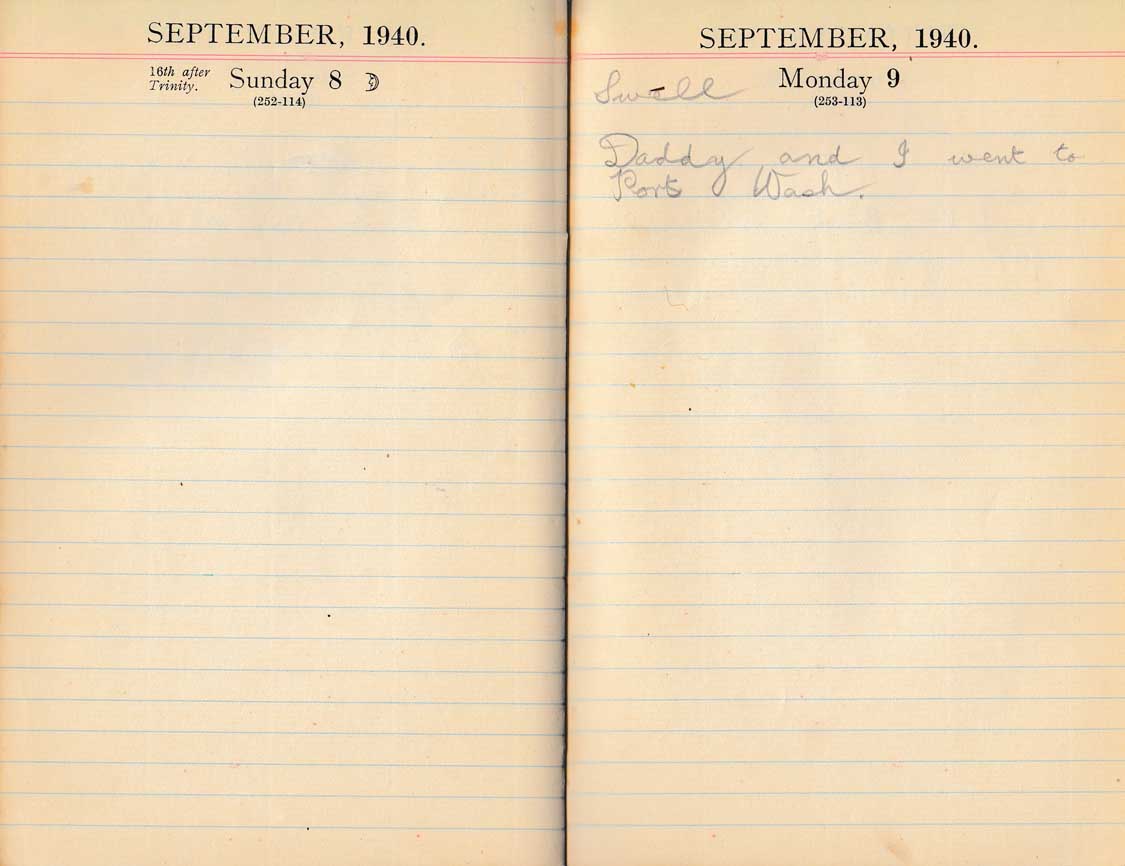 SEPTEMBER, 1940.
16th after
Trinity.
Sunday 8
(252-114)
SEPTEMBER, 1940.
Monday 9
(253-113)
Swell
Daddy and I went to
Port Wash.